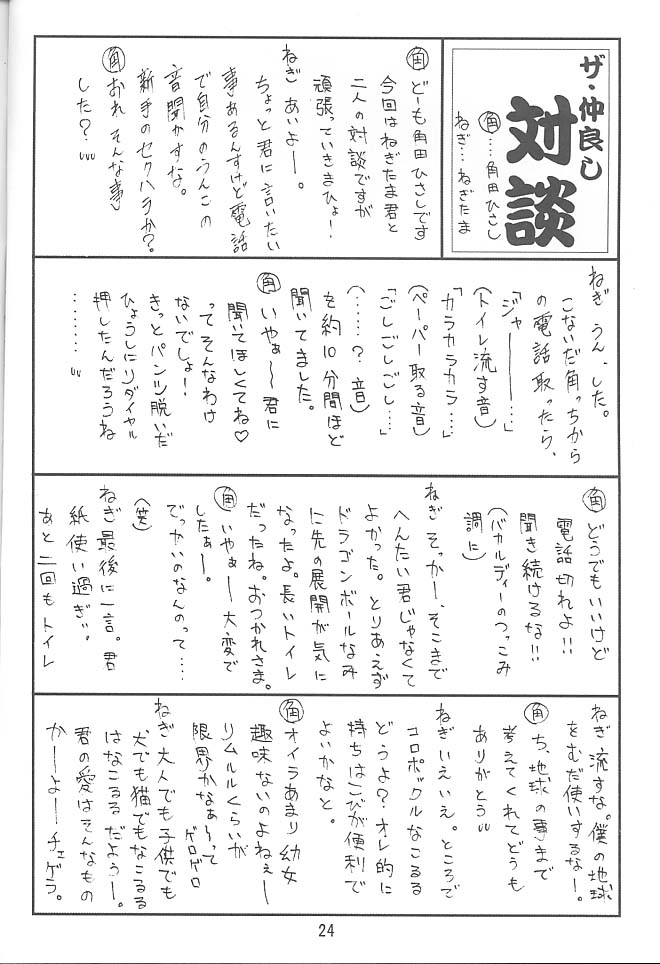 ザ・仲良し
対談
角……角田ひさし
ねぎ…ねぎたま
角 どーも角田ひさしです
今回はねぎたま君と
二人の対談ですが
頑張っていきまひょ!
ねぎ あいよー。
ちょっと君に言いたい
事あるんすけど電話
で自分のうんこの
音聞かすな。
新手のセクハラか?
角 おれそんな事
した?
ねぎ うん、した。
こないだ角っちから
の電話取ったら、
「ジャー―――…」
(トイレ流す音)
「カラカラカラ…」
(ペーパー取る音)
「ごしごしごし…」
(……?音)
を約10分間ほど
聞いてました。
角 いやぁ〜君に
聞いてほしくてね♡
ってそんなわけ
ないでしょ!
きっとパンツ脱いだ
ひょうしにリダイヤル
押したんだろうね
………
角 どうでもいいけど
電話切れよ!!
聞き続けるな!!
(バカルディーのつっこみ
調に)
ねぎ そっかー、そこまで
へんたい君じゃなくて
よかった。とりあえず
ドラゴンボールなみ
に先の展開が気に
なったよ。長いトイレ
だったね。おつかれさま。
角 いやぁー大変で
したぁー。
でっかいのなんのって…
(笑)
ねぎ 最後に一言。君
紙使い過ぎ。
あと二回もトイレ
ねぎ 流すな。僕の地球
をむだ使いするなー。
角 ち、地球の事まで
考えてくれてどうも
ありがとう
ねぎ いえいえ。ところで
コロポックルなこるる
どうよ?オレ的に
持ちはこびが便利で
よいかなと。
角 オイラあまり幼女
趣味ないのよねぇー
リムルルくらいが
限界かなぁ〜って
ゲロゲロ
ねぎ 大人でも子供でも
犬でも猫でもなこるる
はなこるるだよぅー。
君の愛はそんなもの
かーよーチェゲラ。
24